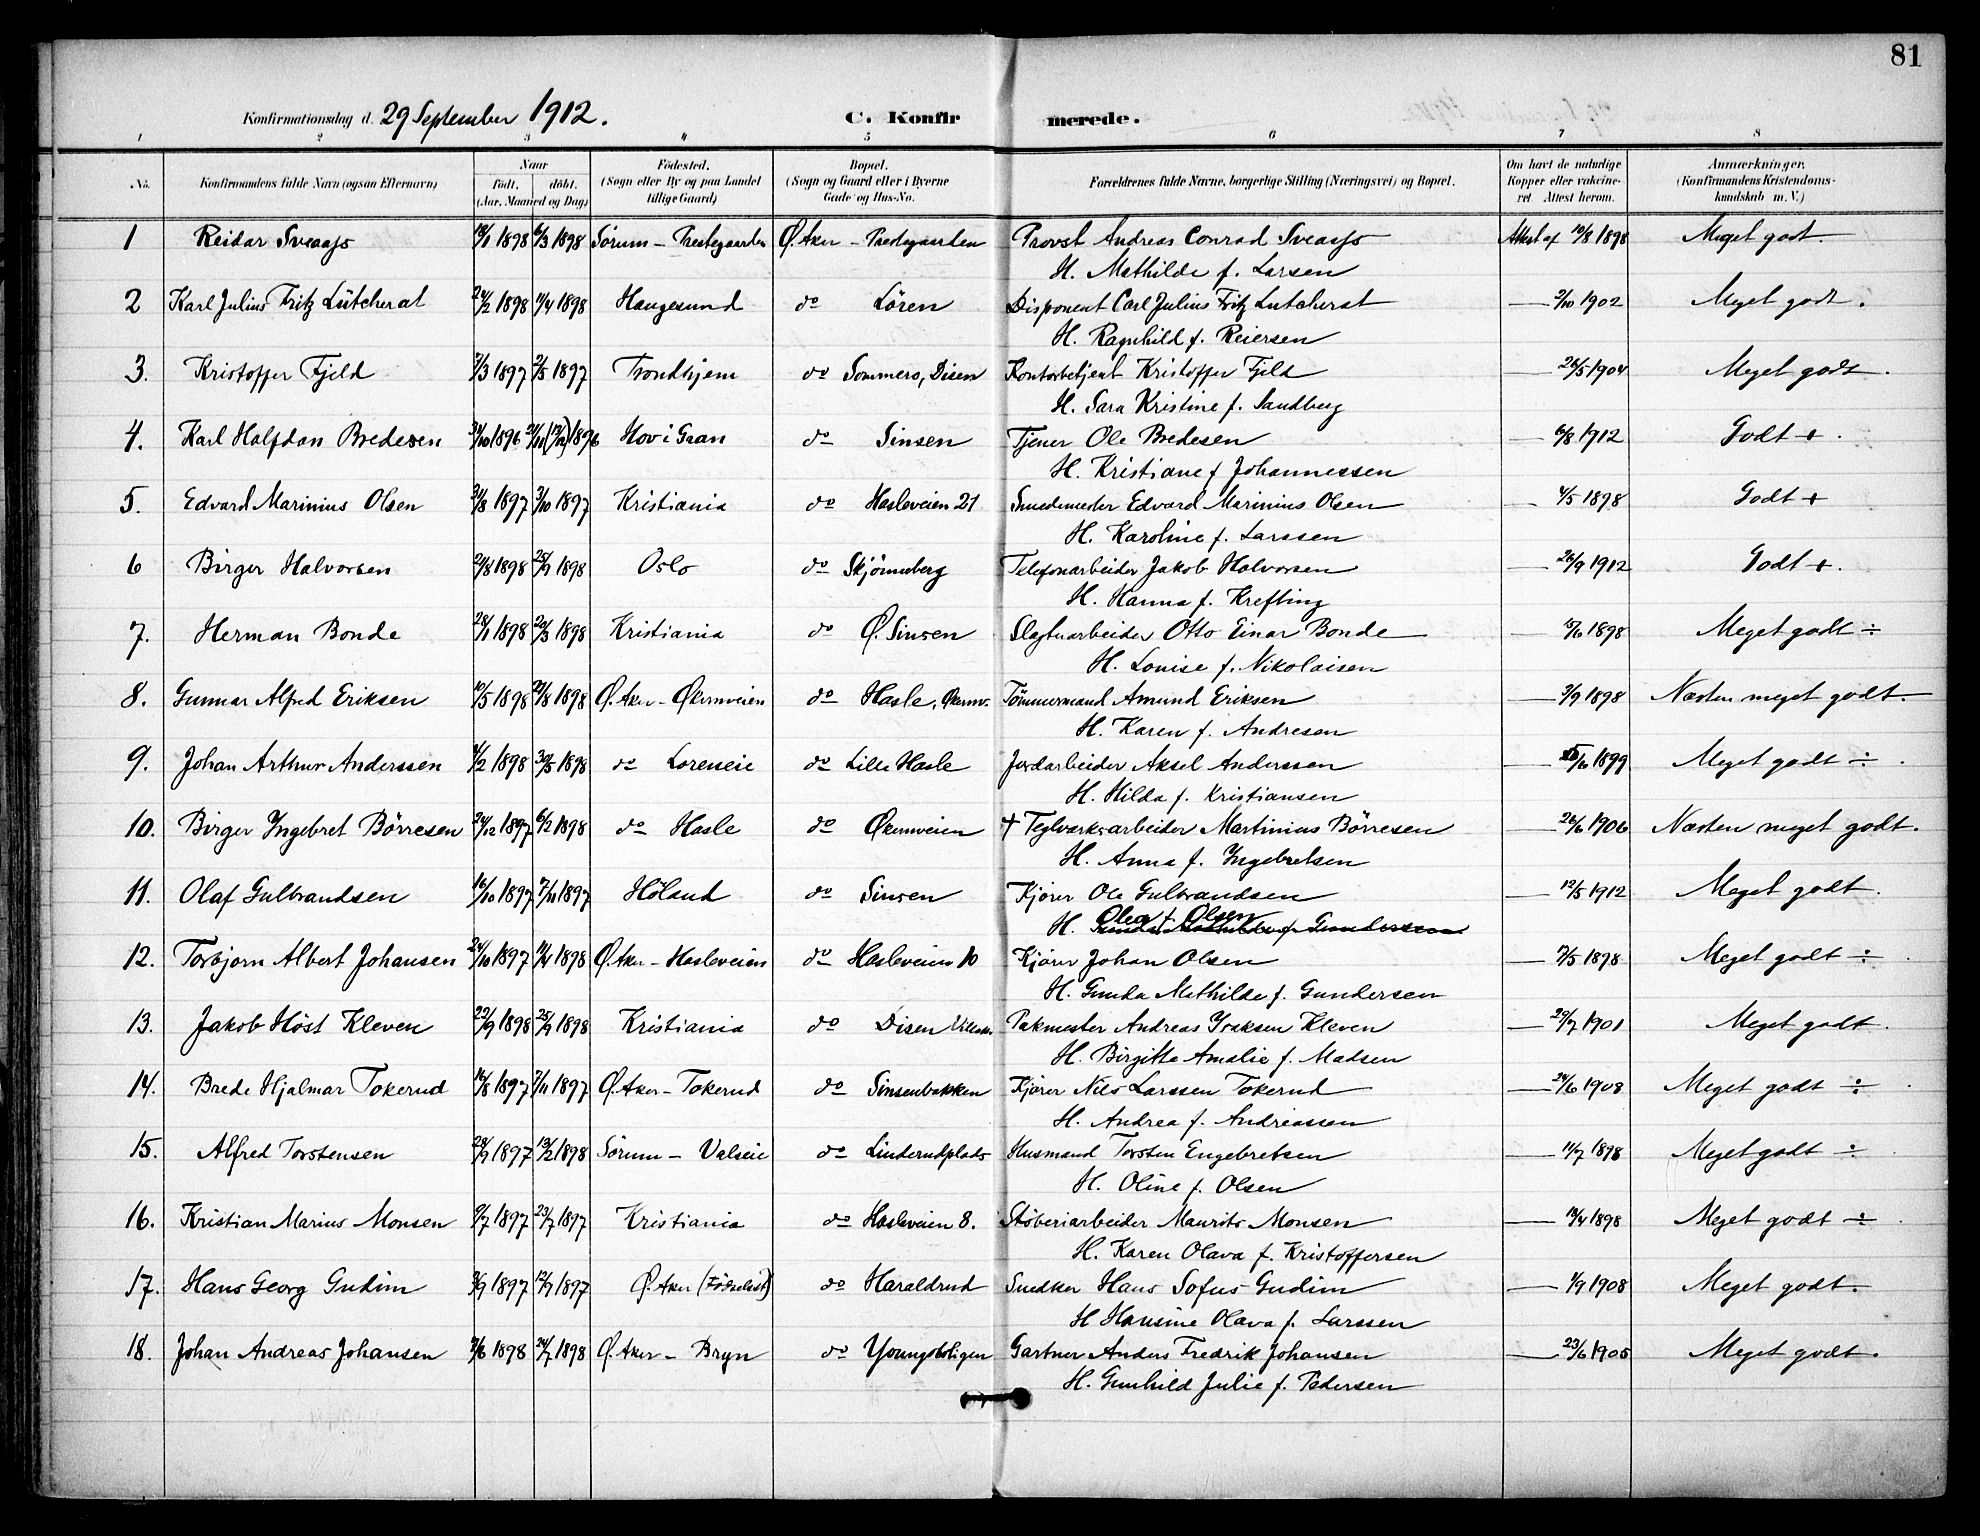 81
Konfirmationsdag d. 29 September 1912.
C. Konfirmerede.
1 2 3 4 5 6 7 8
No.
Konfirmandens fulde Navn (ogsaa Efternavn)
Naar
født. døbt.
(Aar, Maaned og Dag)
Fødested.
(Sogn eller By og paa Landet
tillige Gaard)
Bopæl.
(Sogn og Gaard eller i Byerne
Gade og Hus-No.
Forældrenes fulde Navne, borgerlige Stilling (Næringsvei) og Bopæl.
Om havt de naturlige
Kopper eller vakcine-
ret Attest herom.
Anmærkninger.
(Konfirmandens Kristendoms-
kundskab m. V.)
1 Reidar Sveaass 18/1 1898 6/3 1898 Sørum - Prestegaarden Ø. Aker - Prestegaarden Provst Andreas Conrad Sveaass Attest af 10/8 1898 Meget godt.
H. Mathilde f. Larsen
2 Karl Julius Fritz Lütcherat 24/2 1898 11/4 1898 Haugesund do Lören Disponent Carl Julius Fritz Lutcherat — 2/10 1902 Meget godt.
H. Ragnhild f. Reiersen
3. Kristoffer Fjeld 3/3 1897 2/5 1897 Trondhjem do Sommero, Disen Kontorbetjent Kristoffer Fjeld — 26/5 1904 Meget godt.
H. Sara Kristine f. Sandberg
4. Karl Halfdan Bredesen 31/10 1896 1896 Hov i Gran do Sinsen Tjener Ole Bredesen — 6/8 1912 Godt +.
H. Kristiane f Johannessen
5. Edvard Marinius Olsen 31/8 1897 3/10 1897 Kristiania do Hasleveien 21 Smedemester Edvard Marinius Olsen — 4/5 1898 Godt +
H. Karoline f. Larssen
6 Birger Halvorsen 21/8 1898 25/9 1898 Oslo do Skjönneberg Telefonarbeider Jakob Halvorsen — 26/9 1912 Godt +.
H. Hanna f. Krefting
7. Herman Bonde 28/1 1898 20/3 1898 Kristiania do Ø. Sinsen Slagteriarbeider Otto Einar Bonde 1898 Meget godt ÷
H. Louise f. Nikolaisen
8. Gunnar Alfred Eriksen 10/5 1898 21/8 1898 Ø. Aker - Økernveien do Hasle, Økernv. Tömmermand Amund Eriksen — 3/9 1898 Næsten meget godt.
H. Karen f. Andresen
9. Johan Arthur Anderssen 4/2 1898 30/5 1898 do Loreneie do Lille Hasle Jordarbeider Aksel Anderssen 1899 Meget godt ÷.
H. Hilda f. Kristiansen
10. Birger Yngebret Börresen 24/12 1897 6/2 1898 do Hasle do Økernveien + Teglværksarbeider Martinius Börresen — 26/6 1906 Næsten meget godt.
H. Anna f. Yngebretsen
11. Olaf Gulbrandsen 16/10 1897 7/11 1897 Höland do Sinsen Kjörer Ole Gulbrandsen — 12/5 1912 Meget godt.
Olea f. Olsen
H. Gunda Mathilde f. Gundersen
12. Torbjorn Albert Johansen 24/10 1897 11/4 1898 Ø. Aker - Hasleveien do Hasleveien 10 Kjörer Johan Olsen 1898 Meget godt ÷
H. Gunda Mathilde f. Gundersen
13. Jakob Höst Kleven 22/9 1898 25/9 1898 Kristiania do Disen Pakmester Andreas Ysaksen Kleven — 29/7 1901 Meget godt.
H. Birgitte Amalie f. Madsen
14. Brede Hjalmar Tokerud 16/8 1897 7/11 1897 Ø. Aker - Tokerud do Sinsenbakken Kjörer Nils Larssen Tokerud — 24/6 1908 Meget godt ÷
H. Andrea f. Andreassen
15. Alfred Torstensen 28/9 1897 13/2 1898 Sörum - Valseie do Linderudplads Husmand Torsten Engebretsen — 11/7 1898 Meget godt ÷
H. Oline f. Olsen
16. Kristian Marius Monsen 9/7 1897 23/7 1897 Kristiania do Hasleveien 8. Stöberiarbeider Maurits Monsen — 14/4 1898 Meget godt ÷
H. Karen Olava f. Kristoffersen
17. Hans Georg Gudim 3/9 1897 12/9 1897 Ø. Aker do Haraldrud Snedker Hans Sofus Gudim — 1/9 1908 Meget godt.
H Hansine Olava f. Larssen
18. Johan Andreas Johansen 3/6 1898 24/7 1898 Ø. Aker - Bryn do Youngsboligen Gartner Anders Fredrik Johansen — 23/6 1905 Meget godt.
H. Gunhild Julie f. Pedersen